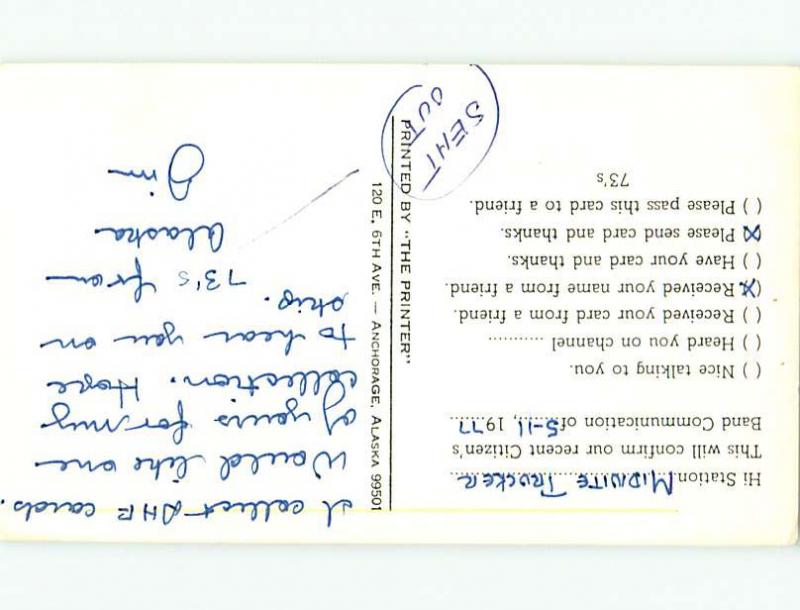 Hi Station MIDNITE TRUCKER
This will confirm our recent Citizen's
Band Communication of 5-11, 1977
( ) Nice talking to you.
( ) Heard you on channel ............
( ) Received your card from a friend.
(X) Received your name from a friend.
( ) Have your card and thanks.
(X) Please send card and thanks.
( ) Please pass this card to a friend.
73's
PRINTED BY "THE PRINTER"
120 E. 6TH AVE. — ANCHORAGE, ALASKA 99501
SENT
OUT
I collect cards.
Would like one
of yours for my
collection. Hope
to hear you on
skip.
73's from
Alaska
Jim